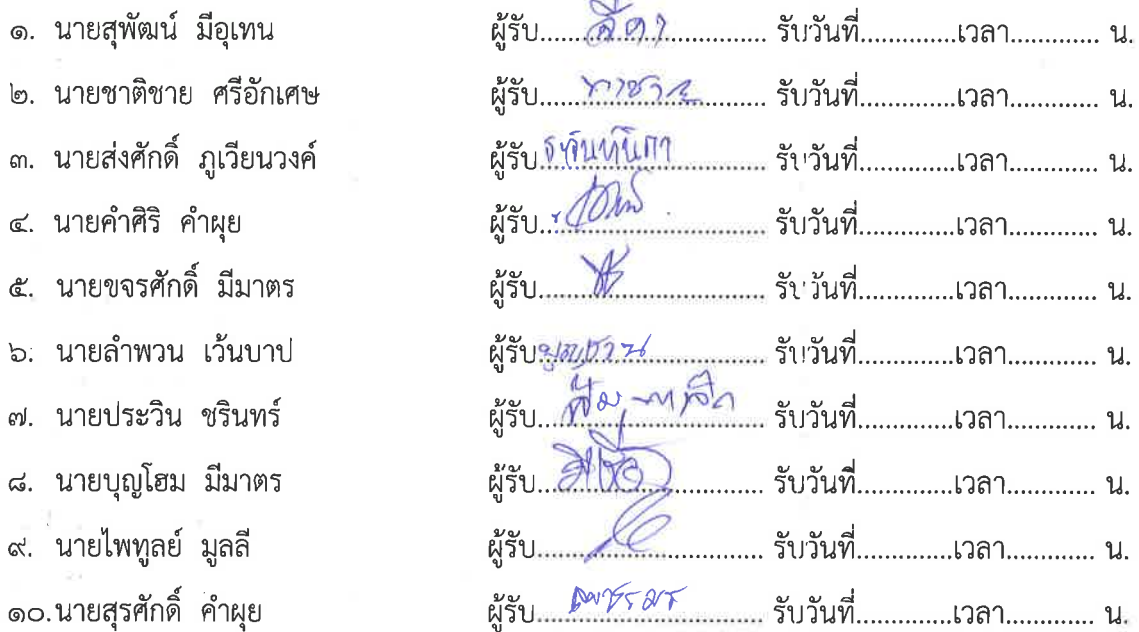 ๑. นายสุพัฒน์ มีอุเทน ผู้รับ.................... รับวันที่..............เวลา............. น.
๒. นายชาติชาย ศรีอักเศษ ผู้รับ.................... รับวันที่..............เวลา............. น.
๓. นายส่งศักดิ์ ภูเวียนวงค์ ผู้รับ.................... รับวันที่..............เวลา............. น.
๔. นายคำศิริ คำผุย ผู้รับ.................... รับวันที่..............เวลา............. น.
๕. นายขจรศักดิ์ มีมาตร ผู้รับ.................... รับวันที่..............เวลา............. น.
๖. นายลำพวน เว้นบาป ผู้รับ.................... รับวันที่..............เวลา............. น.
๗. นายประวิน ชรินทร์ ผู้รับ.................... รับวันที่..............เวลา............. น.
๘. นายบุญโฮม มีมาตร ผู้รับ.................... รับวันที่..............เวลา............. น.
๙. นายไพทูลย์ มูลลี ผู้รับ.................... รับวันที่..............เวลา............. น.
๑๐.นายสุรศักดิ์ คำผุย ผู้รับ.................... รับวันที่..............เวลา............. น.